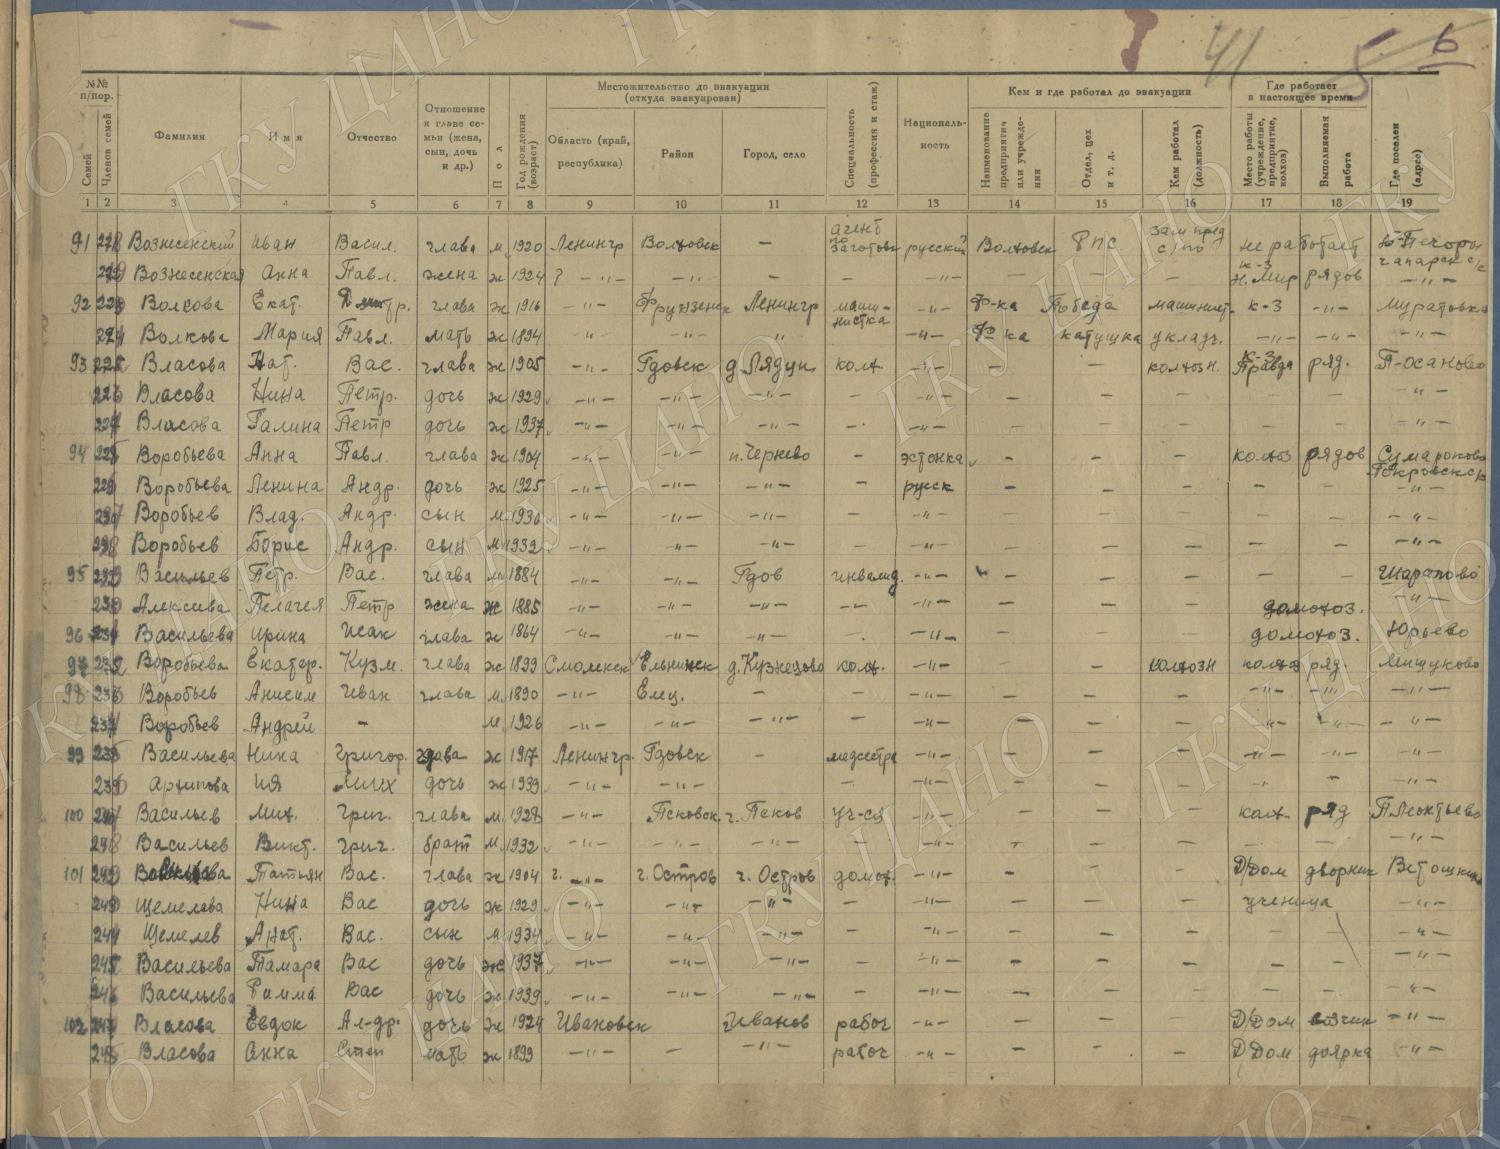 41 5 6
№№ п/пор.
Семей
Членов семей
Фамилия
Имя
Отчество
Отношение к главе семьи (жена, сын, дочь и др.)
Пол
Год рождения (возраст)
Местожительство до эвакуации (откуда эвакуирован)
Область (край, республика)
Район
Город, село
Специальность (профессия и стаж)
Националь-ность
Кем и где работал до эвакуации
Наименование предприятия или учреждения
Отдел, цех и т. д.
Кем работал (должность)
Где работает в настоящее время
Место работы (учреждение, предприятие, колхоз)
Выполняемая работа
Где поселен (адрес)
1 2 3 4 5 6 7 8 9 10 11 12 13 14 15 16 17 18 19
91 Вознесенский Иван Васил. глава м. 1920 Ленингр Волховск — агент по заготовк русский Волховск РПС зам пред с/по не работает
Вознесенская Анна Павл. жена ж 1924 ? — " — — " — к-з Н. Мир рядов — " —
92 Екат. Дмитр. глава ж 1916 — " — Фрунзенск Ленингр маши-нистка — " — Ф-ка Победа машинист. к-з — " — Муратовка
Волкова Мария Павл. мать ж 1894 " " " — " — Ф-ка катушка укладч. — " — — " — — " —
93 225 Власова Нат. Вас. глава ж 1905 — " — Гдовск колх — " — — — колхозн. к-з Правда ряд. П-Осаново
226 Власова Нина Петр. дочь ж 1929 — " — — " — — " — — — " — — — — — — — " —
227 Власова Галина Петр дочь ж 1937 — " — — " — — " — — — " — — — — — — — " —
94 Воробьева Анна Павл. глава ж 1904 — " — — " — п. Чернево — эстонка — — — колхоз рядов Сумароково Покровск с/с
229 Воробьева Ленина Андр. дочь ж 1925 — " — — " — — " — — русск — — — — — — " —
Воробьев Влад. Андр. сын м. 1930 — " — — " — — " — — — " — — — — — — — " —
Воробьев Борис Андр. сын м 1932 — " — — " — — " — — — " — — — — — — — " —
95 Васильев Петр. Вас. глава м 1884 — " — — " — Гдов инвалид. — " — — — — — — Шарапово
Алексива Пелагея Петр жена ж 1885 — " — — " — — " — — " — — " — — — — домохоз. — " —
96 Васильева Ирина Исак глава ж 1864 — " — — " — — " — — — " — — — — домохоз. Юрьево
97 Воробьева Екатер. Кузм. глава ж 1899 Смоленск Ельнинск д. Кузнецово колх. — " — — — колхозн колхоз ряд. Мишуково
98 Воробьев Анисим Иван глава м. 1890 — " — Елец. — — — " — — — — — " — — " — — " —
Воробьев Андрей — м 1926 — " — — " — — " — — — " — — — — — " — — " — — " —
99 Васильева Нина Григор. глава ж 1917 Ленингр. Гдовск — медсестра — " — — — — — " — — " — — " —
Архипова Ия Мих дочь ж 1939 — " — — " — — — — " — — — — — — — " —
100 Васильев Мих. Григ. глава м. 1928 — " — Псковск. г. Псков уч-ся — " — — — — колх. ряд П. Леонтьево
Васильев Викт. григ. брат м. 1932 — " — — " — — " — — — " — — — — — — — " —
101 Татьян Вас. глава ж 1904 г. — " — г. Остров г. Остров домох. — " — — — — Д/Дом дворник
Щемелева Нина Вас дочь ж 1929 — " — — " — — " — — — " — — — — ученица — " —
244 Щемелев Анат. Вас. сын м 1934 — " — — " — — " — — — " — — — — — — — " —
245 Васильева Тамара Вас дочь ж 1937 — " — — " — — " — — — " — — — — — — — " —
246 Васильева Римма Вас дочь ж 1939 — " — — " — — " — — — " — — — — — — — " —
102 Власова Евдок Ал-др. дочь ж 1924 Ивановск г. Иванов рабоч — " — — — — Д/Дом возчик — " —
Власова Анна Степ мать ж 1899 — " — — — " — рабоч — " — — — — Д/Дом доярка — " —
ГКУ ЦАНО